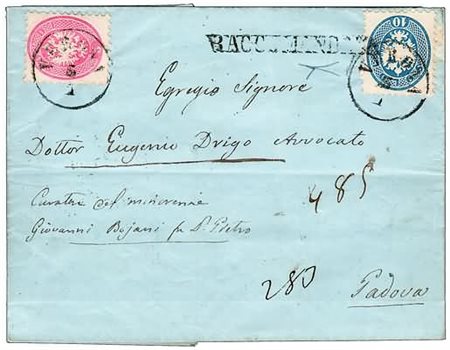 RACCOMANDATA
10
Egregio Signore
Dottor Eugenio Drigo Avvocato
Curatore del minorenne
Giovanni Bojani fu P. Pietro
485
283
Padova